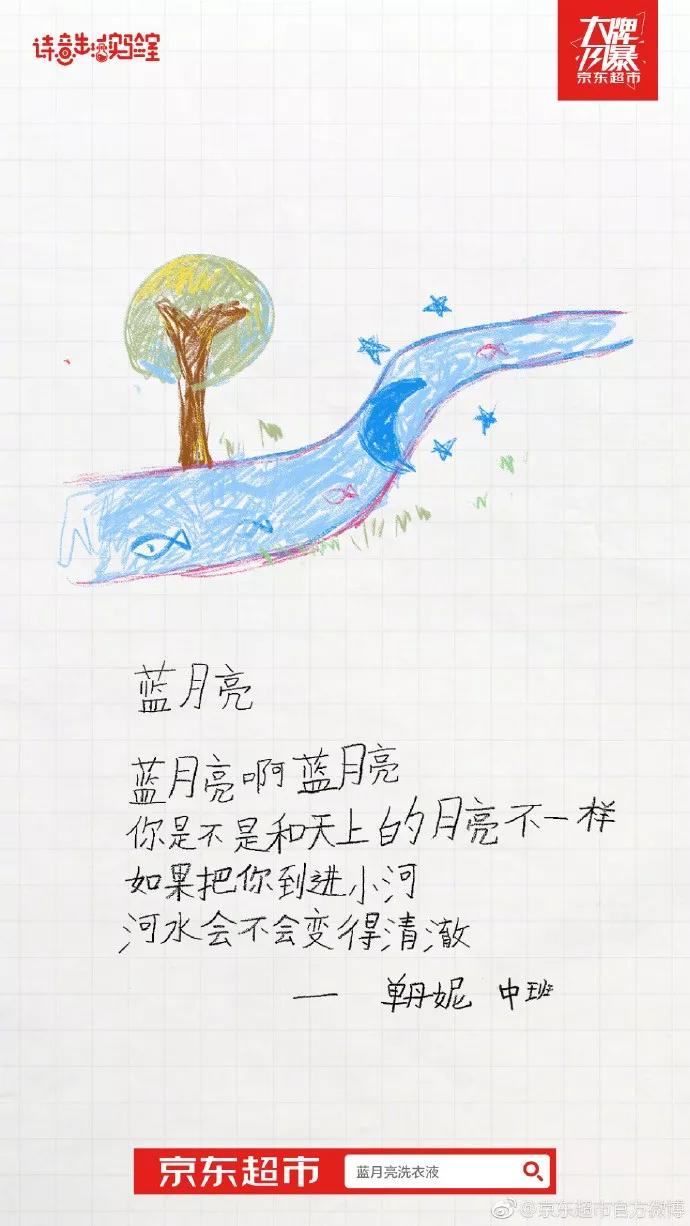 诗意生活实验室
大牌
风暴
京东超市
蓝月亮
蓝月亮啊蓝月亮
你是不是和天上的月亮不一样
如果把你到进小河
河水会不会变得清澈
— 单丹妮 中班
京东超市 蓝月亮洗衣液
@京东超市官方微博